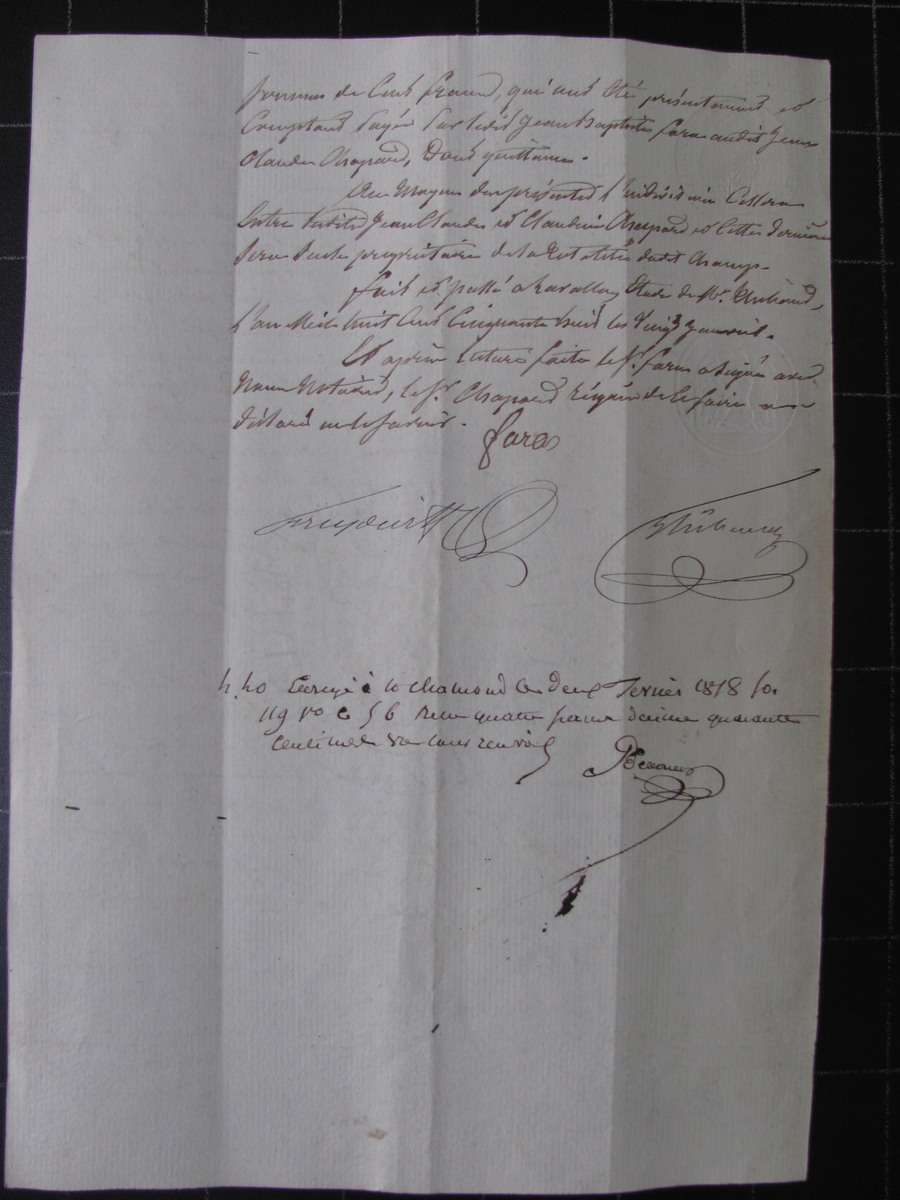 sommes de Cent francs, qui ont été présentement et
Comptant payée par ledit Jean Baptiste fara audit Jean
Claude Chapard, Dont quittance.
Au Moyen des présentes l'indivision Cessera
Entre lesdits Jean Claude et Claudine Chapard et cette dernière
Sera Seule propriétaire de la totalité dudit Champ.
fait et passé a Etude de Mr.
l'an Mil huit Cent Cinquante huit les Vingt Janvier.
Et après lecture faite le Sr. faras a Signé avec
Nous Notaires, le Sr. Chapard requis de le faire a
déclaré ne le savoir.
faras
4.40 Enregé à St chamond le deux Fevrier 1858 fo.
119 Vo C 5 6 Reçu quatre francs decime quarante
centimes sans renvoi